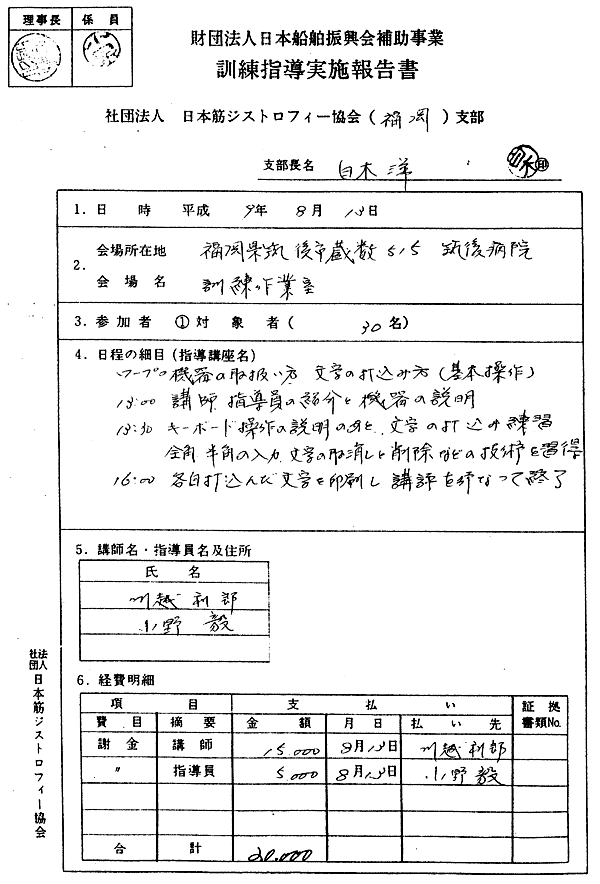 理事長 係員
財団法人日本船舶振興会補助事業
訓練指導実施報告書
社団法人 日本筋ジストロフィー協会(福岡)支部
支部長名 白木 洋
1. 日 時 平成 9年 8月 13日
2. 会場所在地 福岡県筑後市蔵数515 筑後病院
会場名 訓練作業室
3. 参加者 ①対象者( 30名)
4. 日程の細目(指導講座名)
ワープロ機器の取扱い方 文字の打込み方(基本操作)
13:00 講師 指導員の紹介と機器の説明
13:30 キーボード操作の説明のあと、文字の打込み練習
全角 半角の入力 文字の取消しと削除などの技術を習得
16:00 各自打込んだ文字を印刷し 講評を行なって終了
5. 講師名・指導員名及住所
氏 名
川越 利郎
小野 毅
6. 経費明細
項 目 支 払 い 証拠書類No.
費目 摘要 金額 月日 払い先
謝金 講師 15,000 8月13日 川越利郎
〃 指導員 5,000 8月13日 小野 毅
合 計 20,000
社団法人 日本筋ジストロフィー協会